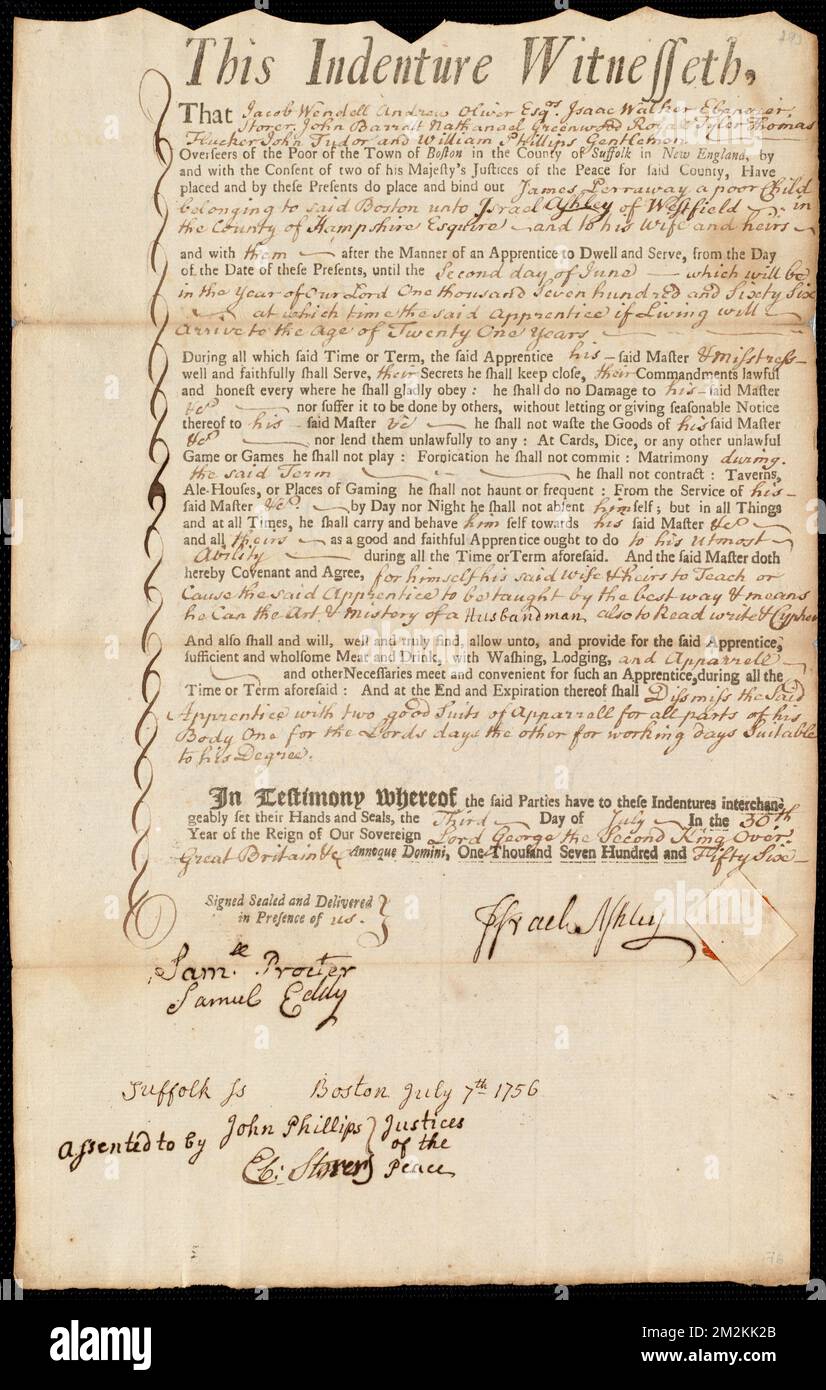 This Indenture Witnesseth,
That Jacob Wendell Andrew Oliver Esqrs. Isaac Walker Ebenezer
Storer, John Barrett Nathanael Greenwood Royall Tyler Thomas
Flucker John Tudor and William Phillips Gentlemen
Overseers of the Poor of the Town of Boston in the County of Suffolk in New England, by
and with the Consent of two of his Majesty's Justices of the Peace for said County, Have
placed and by these Presents do place and bind out James Perraway a poor Child
belonging to said Boston unto Israel Ashley of Westfield in
the County of Hampshire Esquire and to his Wife and heirs
and with them after the Manner of an Apprentice to Dwell and Serve, from the Day
of the Date of these Presents, until the Second day of June which will be
in the Year of Our Lord One thousand Seven hundred and Sixty Six
at which time the said Apprentice if Living will
Arrive to the Age of Twenty One Years
During all which said Time or Term, the said Apprentice his said Master & misstress
well and faithfully shall Serve, their Secrets he shall keep close, their Commandments lawful
and honest every where he shall gladly obey : he shall do no Damage to his said Master
&ca nor suffer it to be done by others, without letting or giving seasonable Notice
thereof to his said Master &c he shall not waste the Goods of his said Master
&ca nor lend them unlawfully to any : At Cards, Dice, or any other unlawful
Game or Games he shall not play : Fornication he shall not commit : Matrimony during
the said Term he shall not contract : Taverns,
Ale-Houses, or Places of Gaming he shall not haunt or frequent : From the Service of his
said Master &ca by Day nor Night he shall not absent himself ; but in all Things
and at all Times, he shall carry and behave him self towards his said Master &ca
and all theirs as a good and faithful Apprentice ought to do to his Utmost
Ability during all the Time or Term aforesaid. And the said Master doth
hereby Covenant and Agree, for himself his said Wife & heirs to Teach or
Cause the said Apprentice to be taught by the best way & means
he Can the Art & mistory of a Husbandman also to Read write & Cypher
And also shall and will, well and truly find, allow unto, and provide for the said Apprentice,
sufficient and wholsome Meat and Drink, with Washing, Lodging, and Apparrell
and other Necessaries meet and convenient for such an Apprentice, during all the
Time or Term aforesaid : And at the End and Expiration thereof shall Dissmiss the Said
Apprentice with two good Suits of Apparrell for all parts of his
Body One for the Lords days the other for working days Suitable
to his Degree.
In Testimony whereof the said Parties have to these Indentures interchan-
geably set their Hands and Seals, the Third Day of July In the 30th
Year of the Reign of Our Sovereign Lord George the Second King Over
Great Britain &c Annoque Domini, One Thousand Seven Hundred and Fifty Six
Signed Sealed and Delivered
in Presence of us.
Israel Ashley
Samll Procter
Samuel Eddy
Suffolk ss Boston July 7th 1756
Assented to by John Phillips Justices
of the
Eb: Storer Peace
alamy
Image ID: 2M2KK2B
www.alamy.com